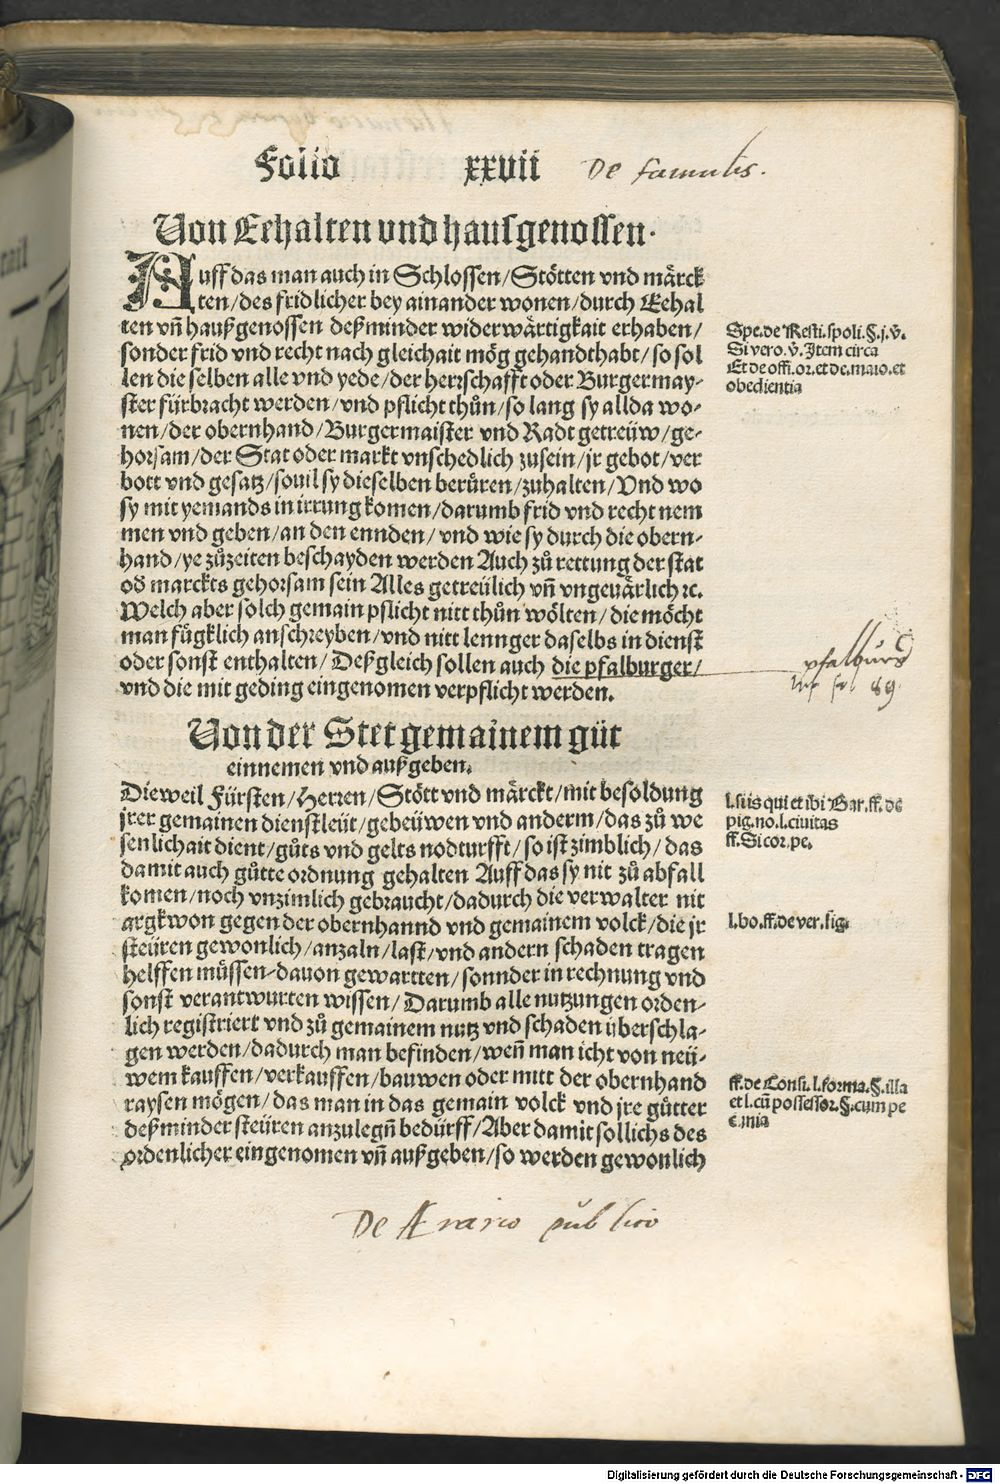 Folio xxvii De famulis.
Von Eehalten vnd hausgenossen.
Auff das man auch in Schlossen/Stötten vnd märck
ten/des fridlicher bey ainander wonen/durch Eehal
ten vñ haußgenossen deßminder widerwärtigkait erhaben/
sonder frid vnd recht nach gleichait mög gehandthabt/so sol
len die selben alle vnd yede/der herrschafft oder Burgermay-
ster fürbracht werden/vnd pflicht thůn/so lang sy allda wo-
nen/der obernhand/Burgermaister vnd Radt getreüw/ge-
horsam/der Stat oder markt vnschedlich zusein/jr gebot/ver
bott vnd gesatz/souil sy dieselben berůren/zuhalten/Vnd wo
sy mit yemands in irrung komen/darumb frid vnd recht nem
men vnd geben/an den ennden/vnd wie sy durch die obern-
hand/ye zůzeiten beschayden werden Auch zů rettung der stat
od marckts gehorsam sein Alles getreülich vñ vngeuärlich ꝛc.
Welch aber solch gemain pflicht nitt thůn wölten/die möcht
man fůgklich anschreyben/vnd nitt lennger daselbs in dienst
oder sonst enthalten/Deßgleich sollen auch die pfalburger/
vnd die mit geding eingenomen verpflicht werden.
Spe.de Resti.spoli.§.j.v̄.
Si vero.v̄.Item circa
Et de offi.or.et de.maio.et
obedientia
pfalburg
fol 89.
Von der Stet gemainem güt
einnemen vnd außgeben.
Dieweil Fürsten/Herren/Stött vnd märckt/mit besoldung
jrer gemainen dienstleüt/gebeüwen vnd anderm/das zů we
senlichait dient/gůts vnd gelts nodturfft/so ist zimblich/das
damit auch gůtte ordnung gehalten Auff das sy nit zů abfall
komen/noch vnzimlich gebraucht/dadurch die verwalter nit
argkwon gegen der obernhannd vnd gemainem volck/die jr
steüren gewonlich/anzaln/last/vnd andern schaden tragen
helffen müssen-dauon gewartten/sonnder in rechnung vnd
sonst verantwurten wissen/Darumb alle nutzungen orden-
lich registriert vnd zů gemainem nutz vnd schaden überschla-
gen werden/dadurch man befinden/weñ man icht von neü-
wem kauffen/verkauffen/bauwen oder mitt der obernhand
raysen mögen/das man in das gemain volck vnd jre gütter
deßminder steüren anzulegñ bedürff/Aber damit sollichs des
ordenlicher eingenomen vñ außgeben/so werden gewonlich
l.si is qui et ibi Bar.ff.de
pig.no.l.ciuitas
ff.Si cor.pe.
l.bo.ff.de ver.sig.
ff.de Consi.l.forma.§.illa
et l.cū possessor.§.cum pe
c.mia
De Ærario publico
Digitalisierung gefördert durch die Deutsche Forschungsgemeinschaft - DFG